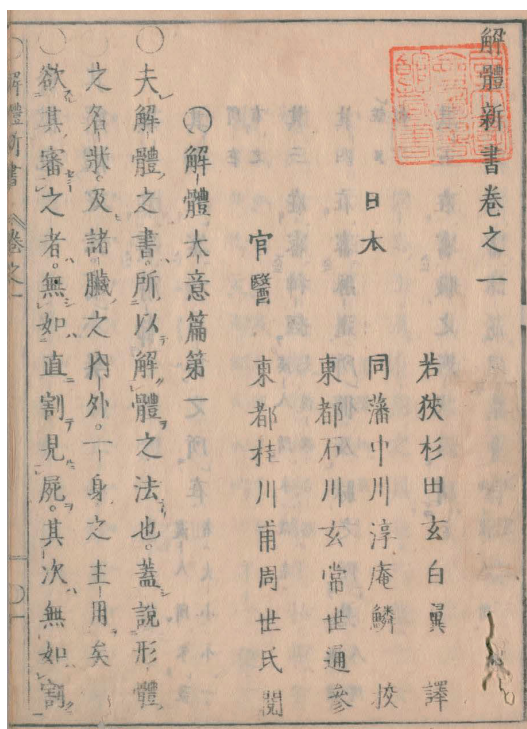 解體新書卷之一
若狹杉田玄白翼 譯
日本 同藩中川淳庵鱗 挍
東都石川玄常世通 參
官醫 東都桂川甫周世民 閱
〇解體大意篇第一
夫解體之書所以解體之法也。蓋說形體
之名狀及諸臟之內外。一身之主用矣
欲其審之者。無如直割見屍。其次無如割
解體新書 卷之一